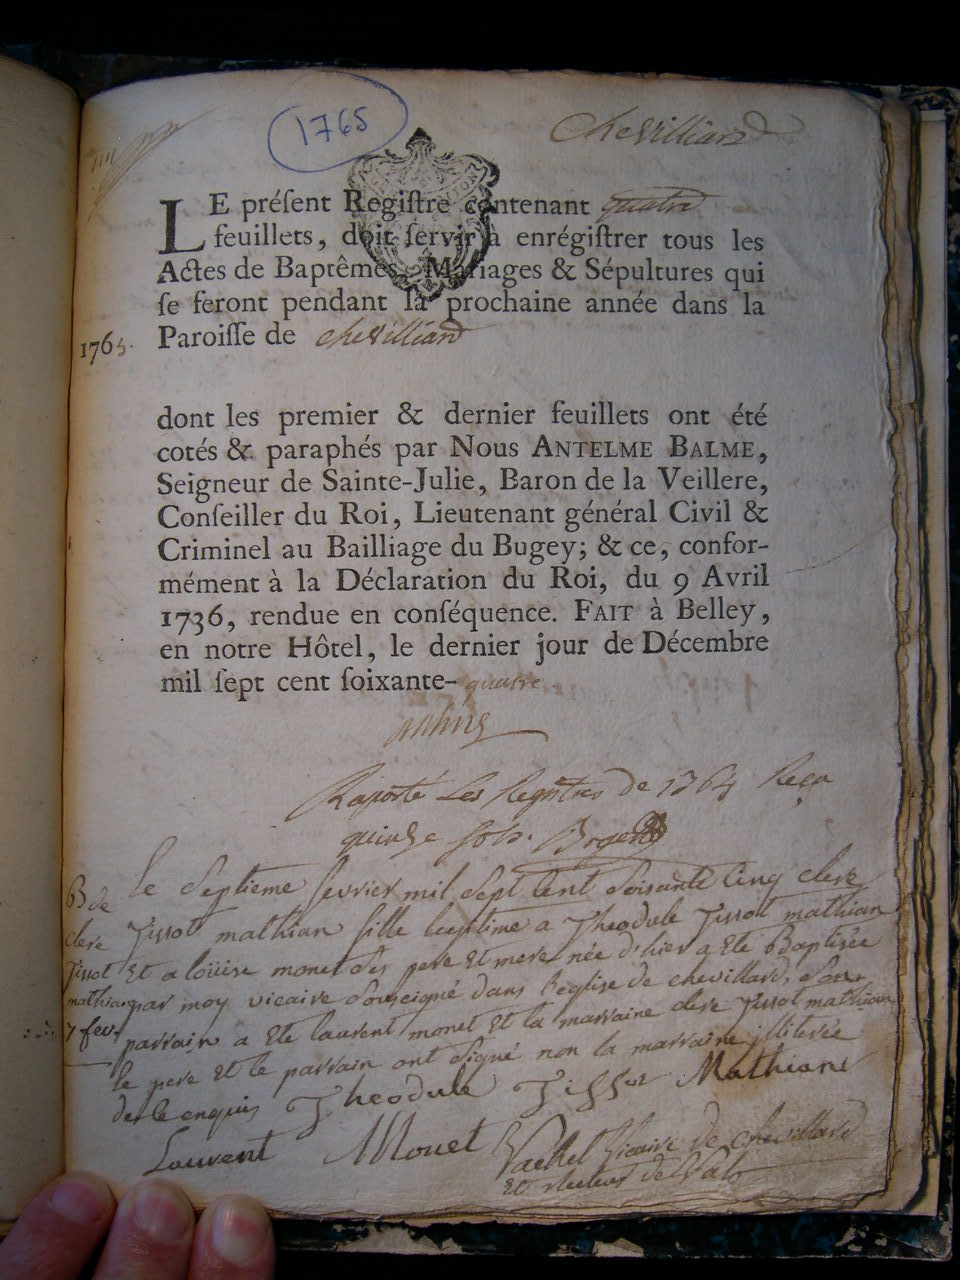 1765
Chevilliard
LE préſent Regiſtre contenant quatre
feuillets, doit ſervir à enrégiſtrer tous les
Actes de Baptêmes, Mariages & Sépultures qui
ſe feront pendant la prochaine année dans la
1765. Paroiſſe de chevilliard
dont les premier & dernier feuillets ont été
cotés & paraphés par Nous ANTELME BALME,
Seigneur de Sainte-Julie, Baron de la Veillere,
Conſeiller du Roi, Lieutenant général Civil &
Criminel au Bailliage du Bugey; & ce, confor-
mément à la Déclaration du Roi, du 9 Avril
1736, rendue en conſéquence. FAIT à Belley,
en notre Hôtel, le dernier jour de Décembre
mil ſept cent ſoixante-quatre
Raporté Les Registres de 1764 Reçu
quinze sols.
B de
clere
Tissot
mathian
7 fevr
Le Septieme fevrier mil Sept Cent Soisante Cinq clere
Tissot mathian fille legitime a Theodule Tissott mathian
Et a loüise monet Ses pere Et mere née d'hier a Ete Baptisée
par moy vicaire Soussigné dans l'eglise de chevillard, Son
parrain a Ete laurent monet Et la marraine clere Tissot mathian
le pere Et le parrain ont Signé non la marraine illiterée
de ce enquis Theodule Tissot Mathian
Laurent Monet Vachel Vicaire de chevillard
Et recteur de